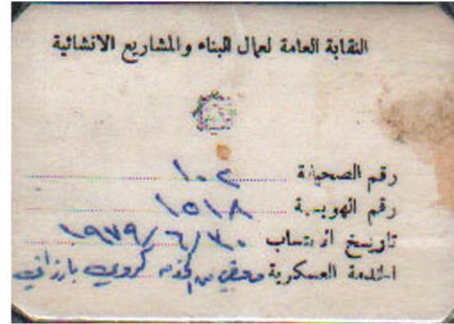 النقابة العامة لعمال البناء والمشاريع الانشائية
رقم الصحيفة ١٠٢
رقم الهوية ١٥١٨
تاريخ الانتساب ١٩٧٩/٦/٣٠
الخدمة العسكرية معفي من الخدمة كردي بارزاني